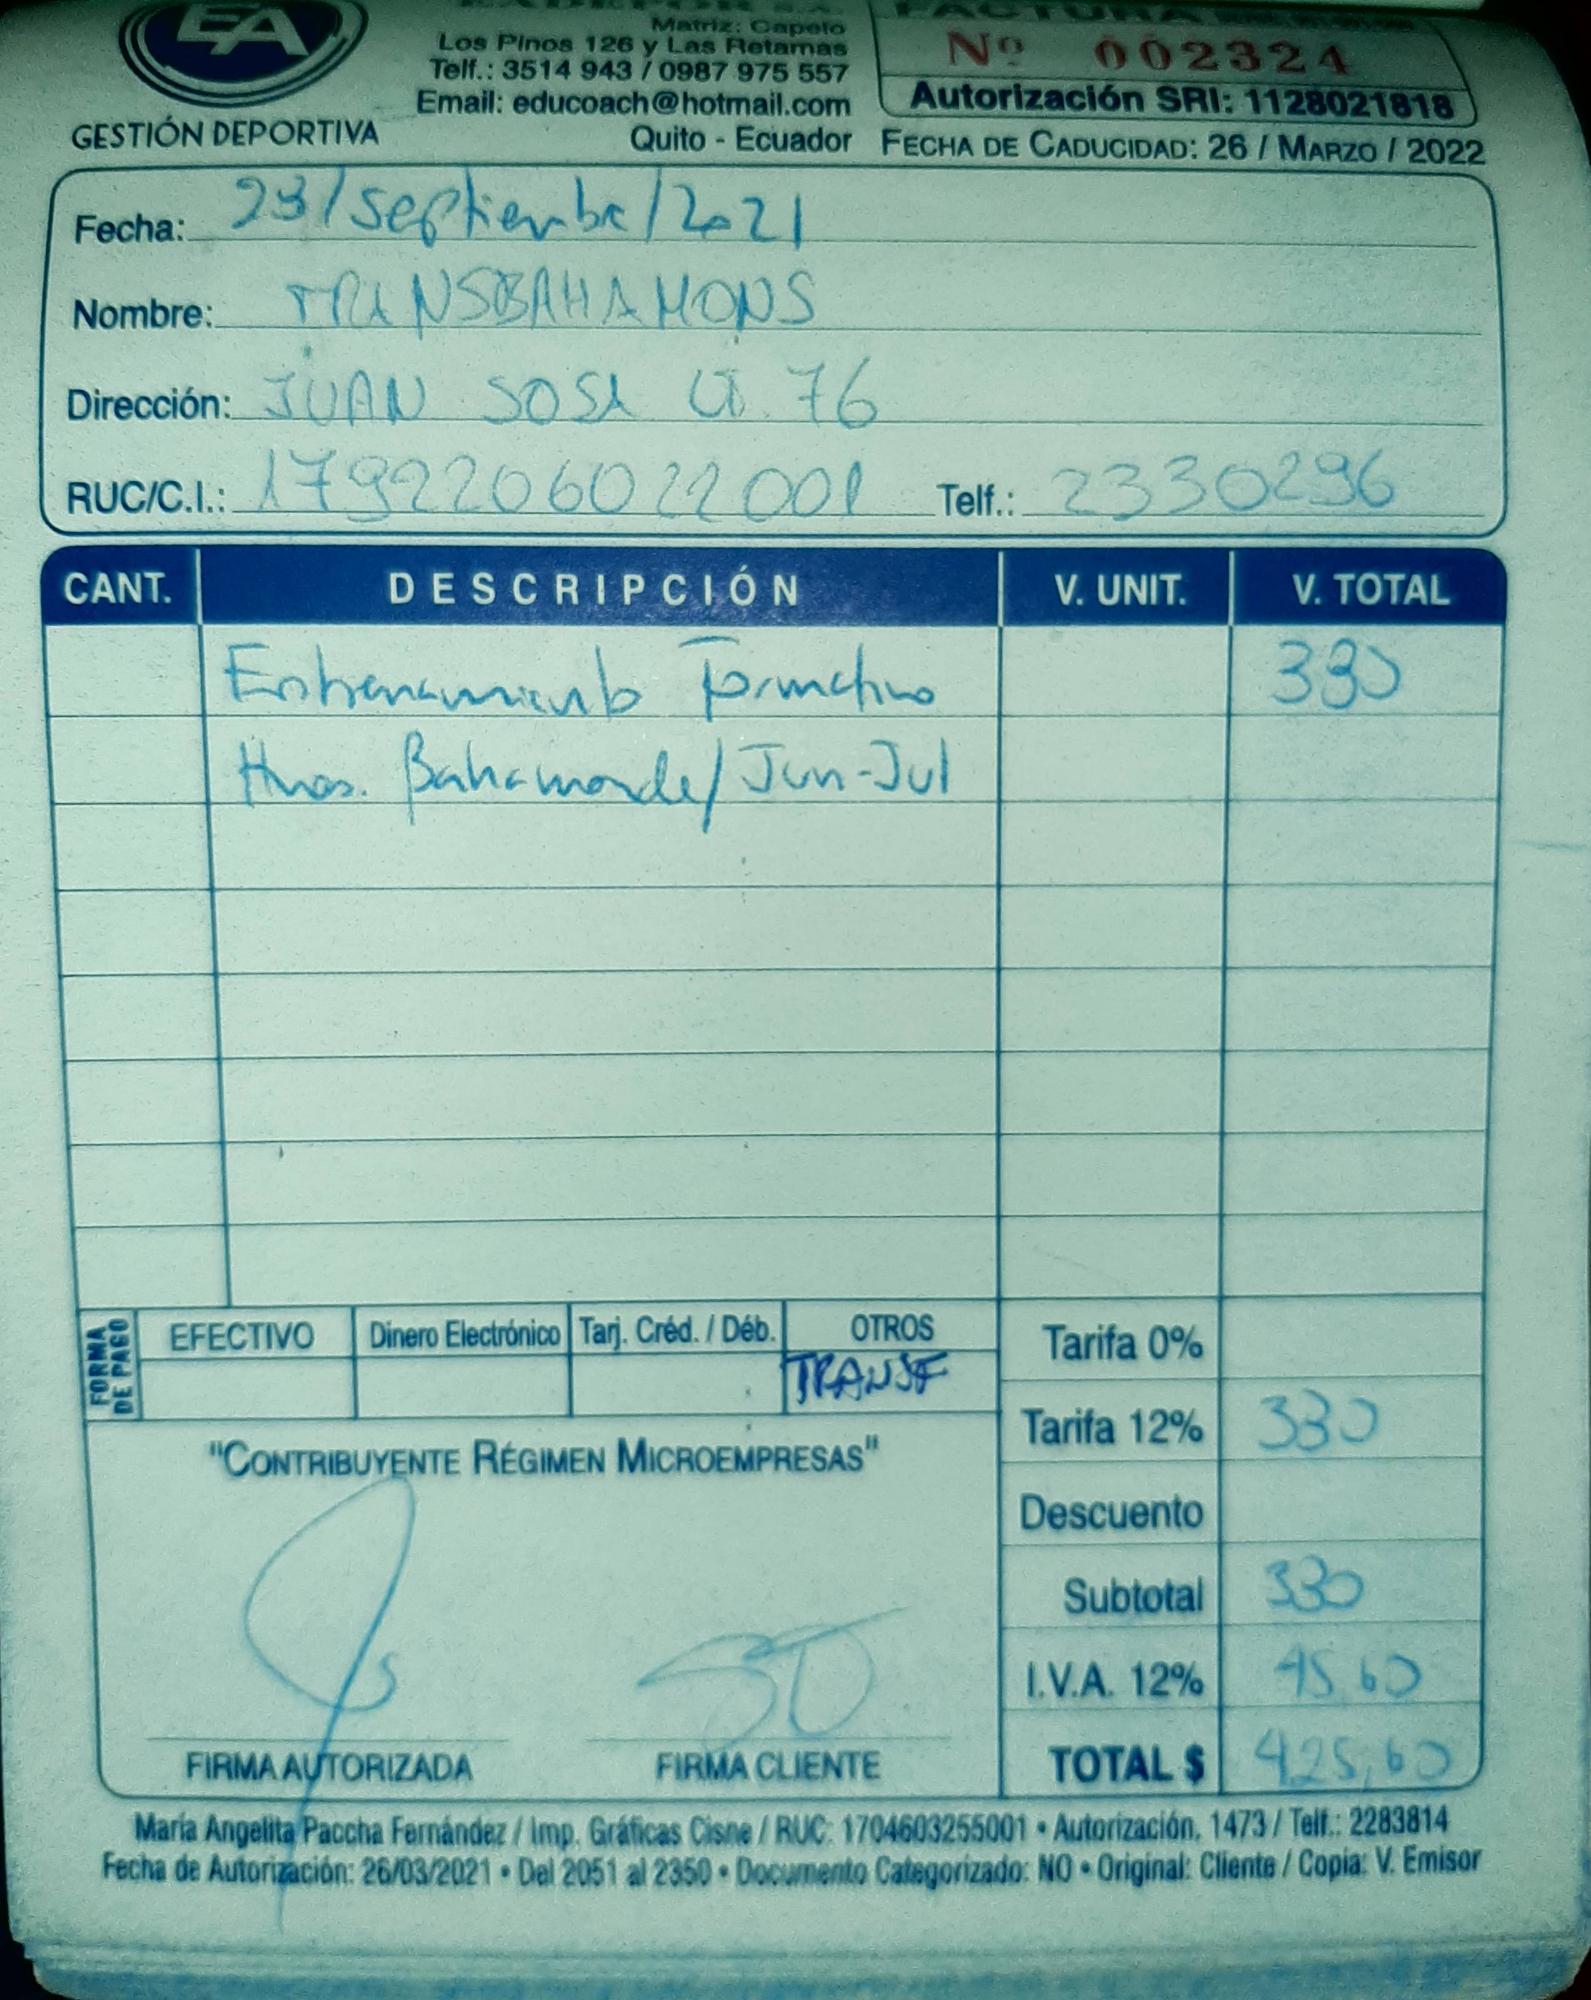 EA
GESTIÓN DEPORTIVA
Matriz: Capelo
Los Pinos 126 y Las Retamas
Telf.: 3514 943 / 0987 975 557
Email: educoach@hotmail.com
Quito - Ecuador
FACTURA
Nº 002324
Autorización SRI: 1128021818
FECHA DE CADUCIDAD: 26 / MARZO / 2022
Fecha: 23/septiembre/2021
Nombre: TRANSBAHAMONS
Dirección: JUAN SOSA 76
RUC/C.I.: 1792206022001 Telf.: 2330296
CANT. DESCRIPCIÓN V. UNIT. V. TOTAL
Entrenamiento Formativo 380
Hnos. Bahamonde/Jun-Jul
FORMA DE PAGO
EFECTIVO Dinero Electrónico Tarj. Créd. / Déb. OTROS
TRANSF
Tarifa 0%
Tarifa 12% 380
Descuento
Subtotal 380
I.V.A. 12% 45,60
TOTAL $ 425,60
"CONTRIBUYENTE RÉGIMEN MICROEMPRESAS"
FIRMA AUTORIZADA FIRMA CLIENTE
María Angelita Paccha Fernández / Imp. Gráficas Cisne / RUC: 1704603255001 • Autorización. 1473 / Telf.: 2283814
Fecha de Autorización: 26/03/2021 • Del 2051 al 2350 • Documento Categorizado: NO • Original: Cliente / Copia: V. Emisor